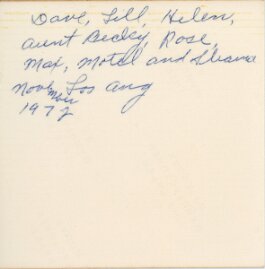 Dave, Lill, Helen,
aunt Becky, Rose,
Max, Motel and
Los Ang
1972